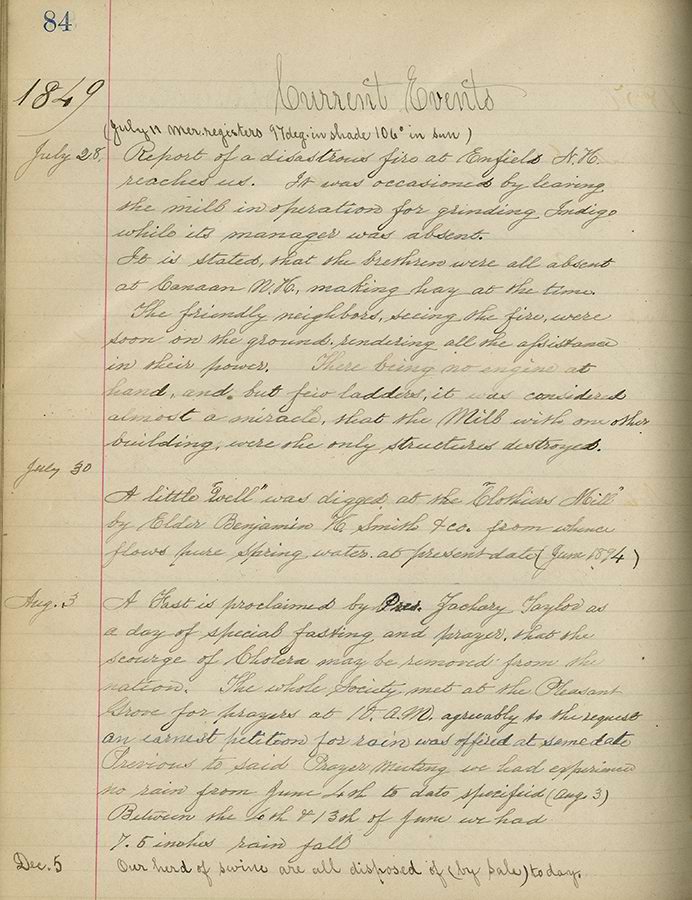 84
1849
Current Events
(July 11 Mer. registers 97 deg. in shade 106° in sun)
July 28, Report of a disastrous fire at Enfield N.H.
reaches us. It was occasioned by leaving
the mill in operation for grinding Indigo
while its manager was absent.
It is stated, that the brethren were all absent
at Canaan N.H., making hay at the time.
The friendly neighbors, seeing the fire, were
soon on the ground rendering all the assistance
in their power. There being no engine at
hand, and but few ladders, it was considered
almost a miracle, that the Mill with one other
building, were the only structures destroyed.
July 30
A little "well" was digged at the "Clothiers Mill"
by Elder Benjamin H. Smith & co. from whence
flows pure spring water at present date (June 1894)
Aug. 3 A Fast is proclaimed by Pres. Zachary Taylor as
a day of special fasting and prayer, that the
scourge of Cholera may be removed from the
nation. The whole Society met at the Pleasant
Grove for prayers at A.M. agreeably to the request
an earnest petition for rain was offered at same date
Previous to said Prayer Meeting we had experienced
no rain from June to date specified (Aug. 3)
Between the & 13th of June we had
7.5 inches rain fall
Dec. 5 Our herd of swine are all disposed of (by sale) today.